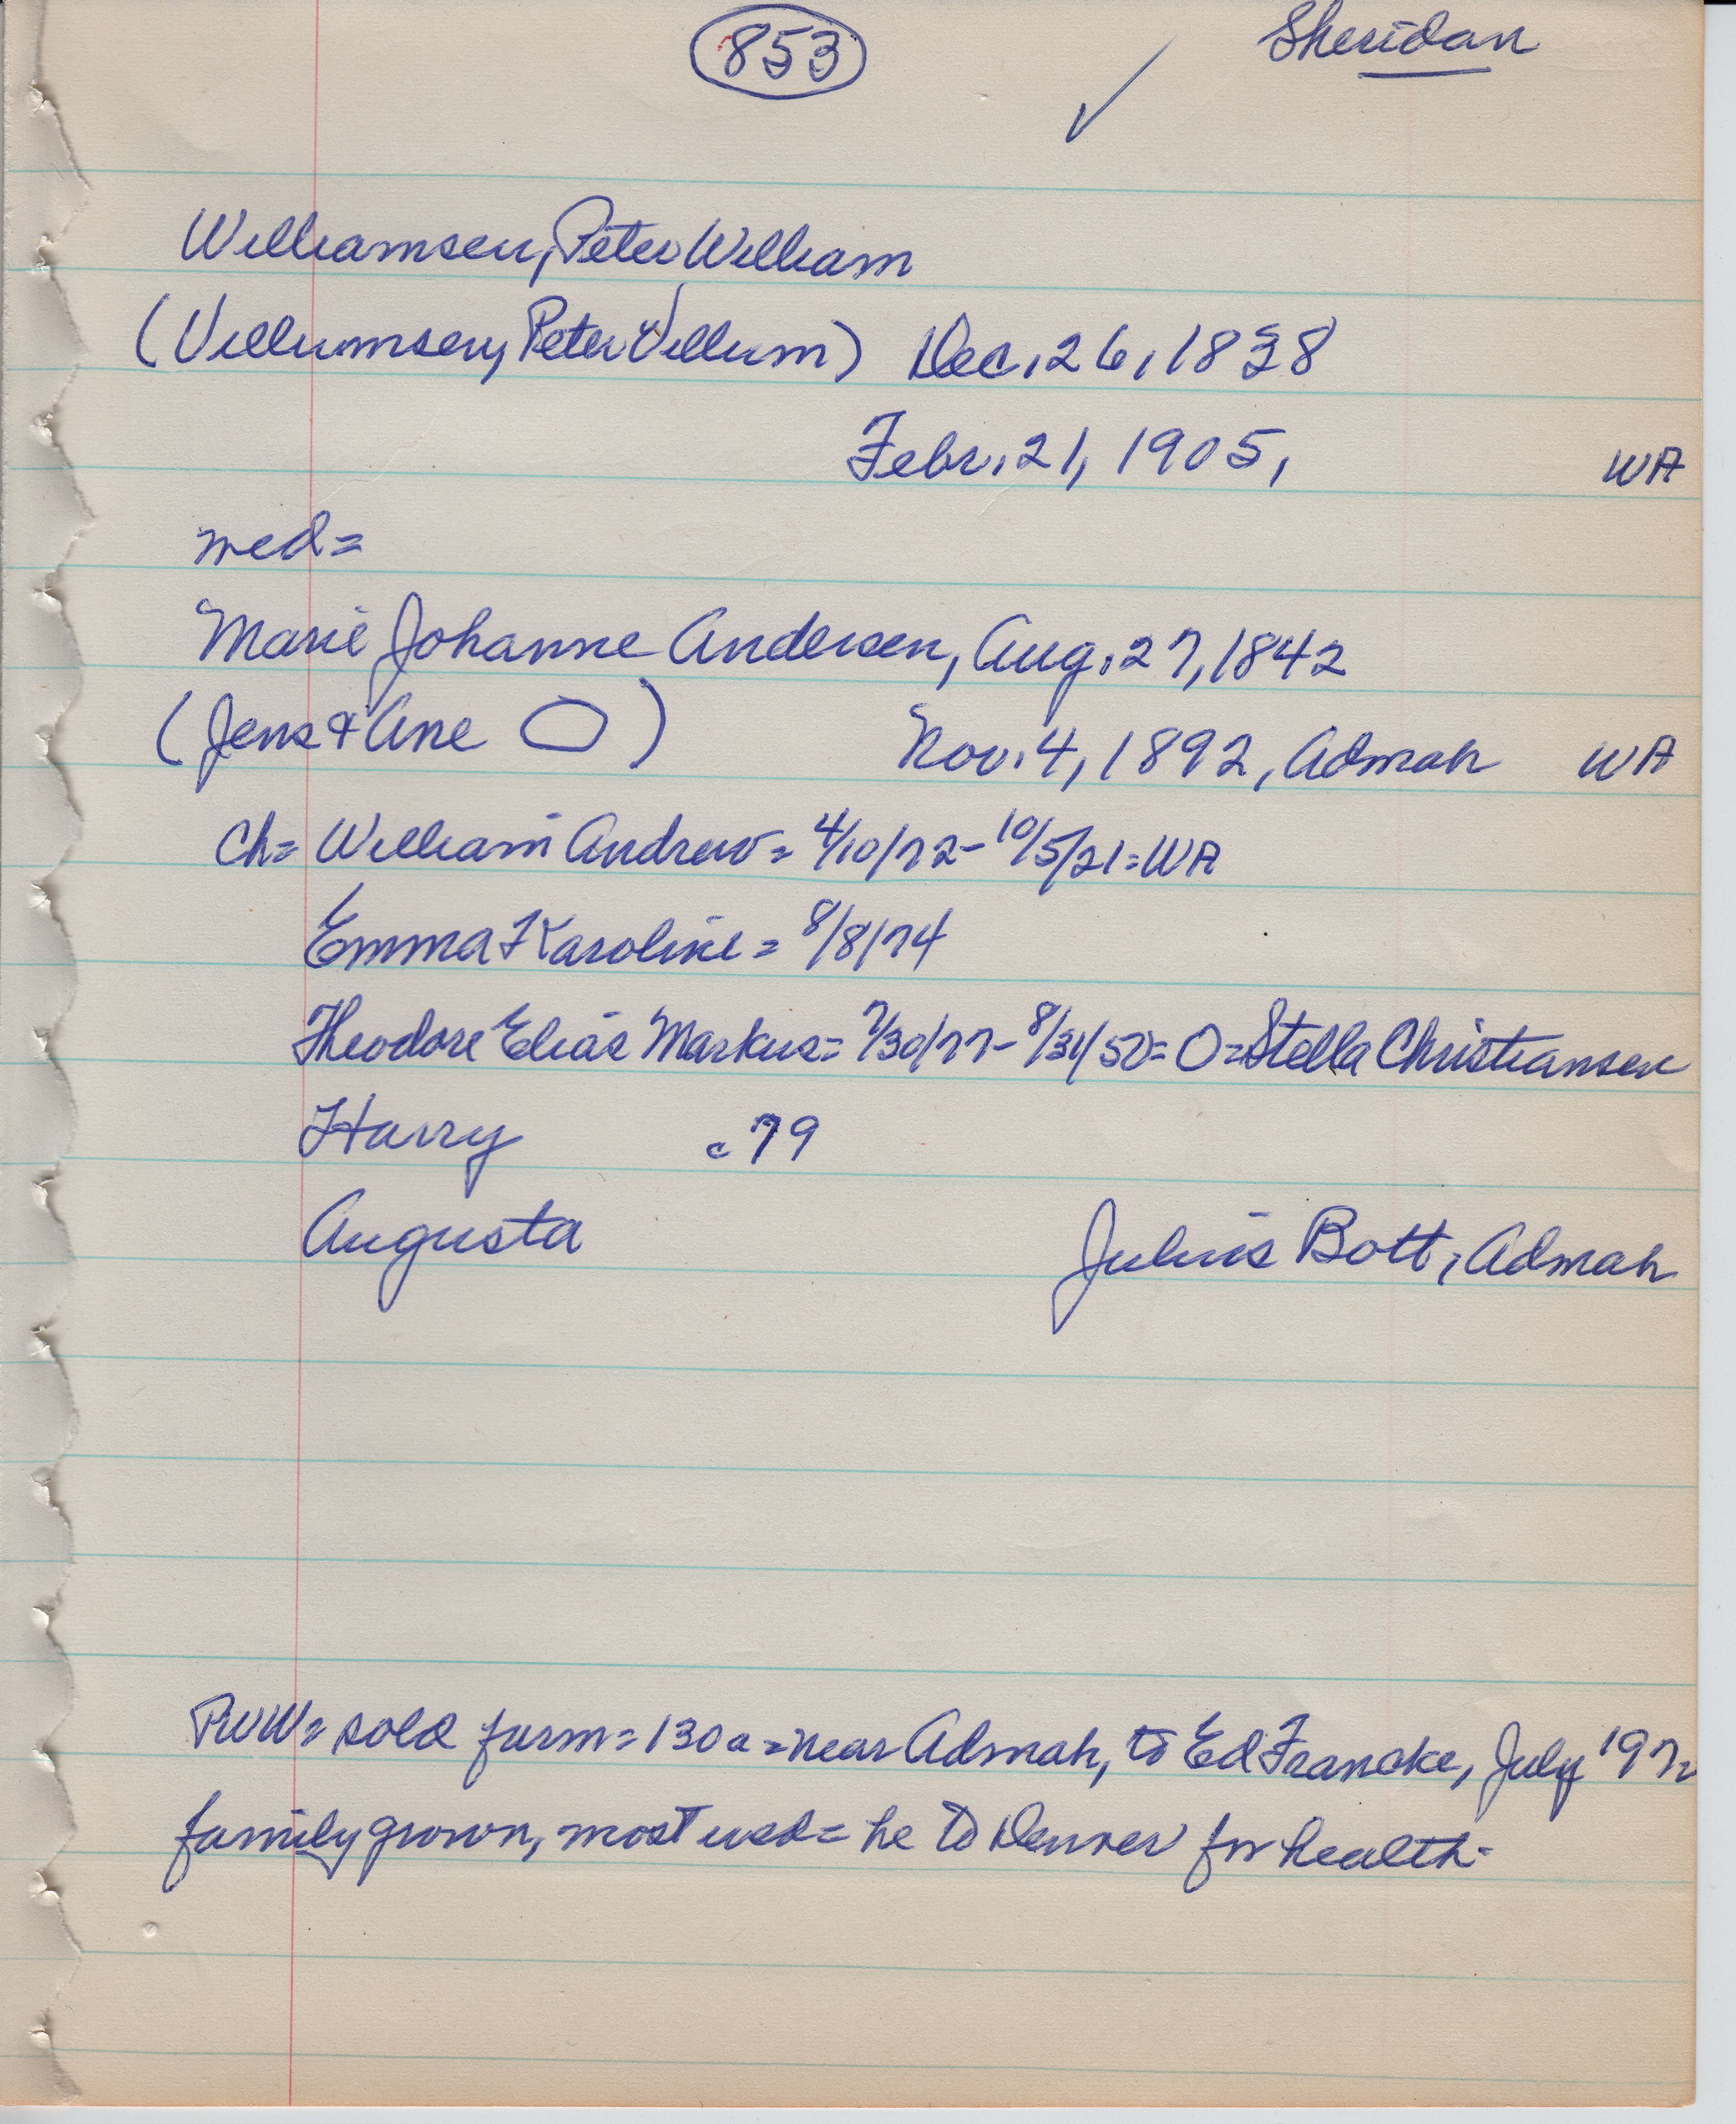 853
Sheridan
Williamsen, Peter William
(Villumsen, Peter Villum) Dec. 26, 1838
Febr. 21, 1905, WA
med=
Marie Johanne Andersen, Aug. 27, 1842
(Jens & Ane ) Nov. 4, 1892, Admah WA
Ch= William Andrew= 4/10/72- 10/5/21=WA
Emma Karoline= 8/8/74
Theodore Elias Markus= 7/30/77- 8/31/50= O=Stella Christiansen
Harry c79
Augusta Julius Bott, Admah
PWW= sold farm=130a=near Admah, to Ed Francke, July
family grown, most wed= he to Denver for health-